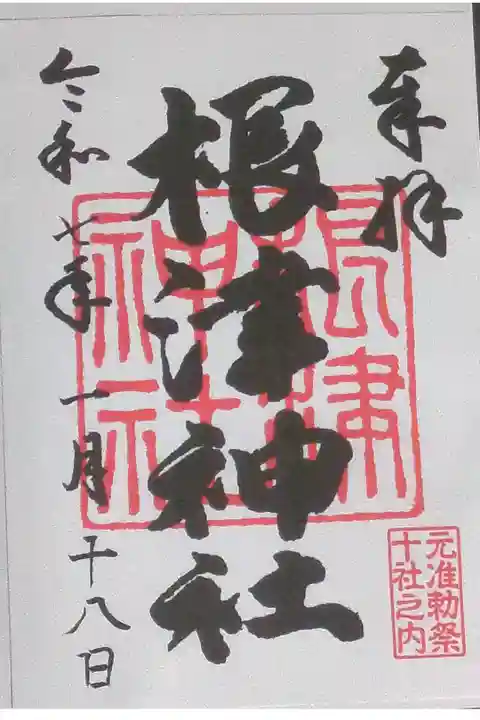 奉拝
根津神社
根津神社
元准勅祭
十社之内
令和七年一月十八日